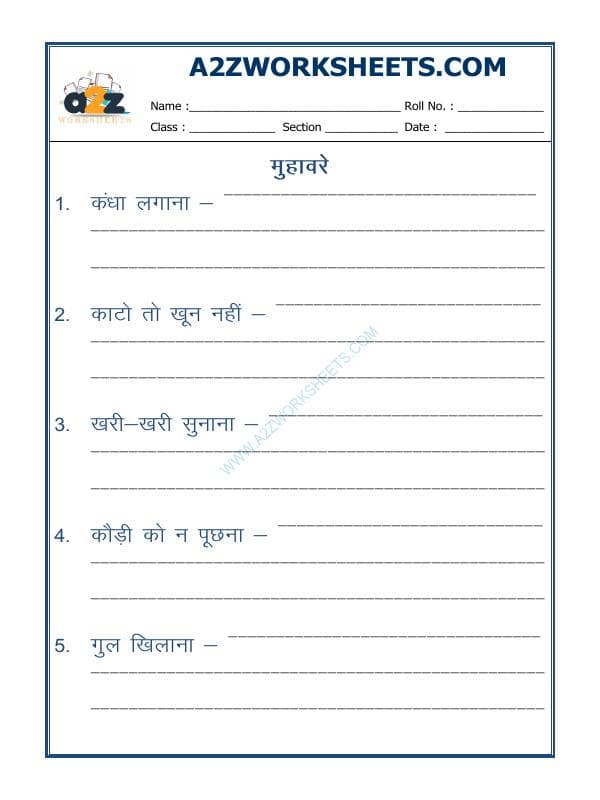 A2ZWORKSHEETS.COM
a2z
WORKSHEETS
Name :______________________________ Roll No. : ____________
Class : ____________ Section __________ Date : ______________
मुहावरे
1. कंधा लगाना –
2. काटो तो खून नहीं –
3. खरी–खरी सुनाना –
4. कौड़ी को न पूछना –
5. गुल खिलाना –
WWW.A2ZWORKSHEETS.COM